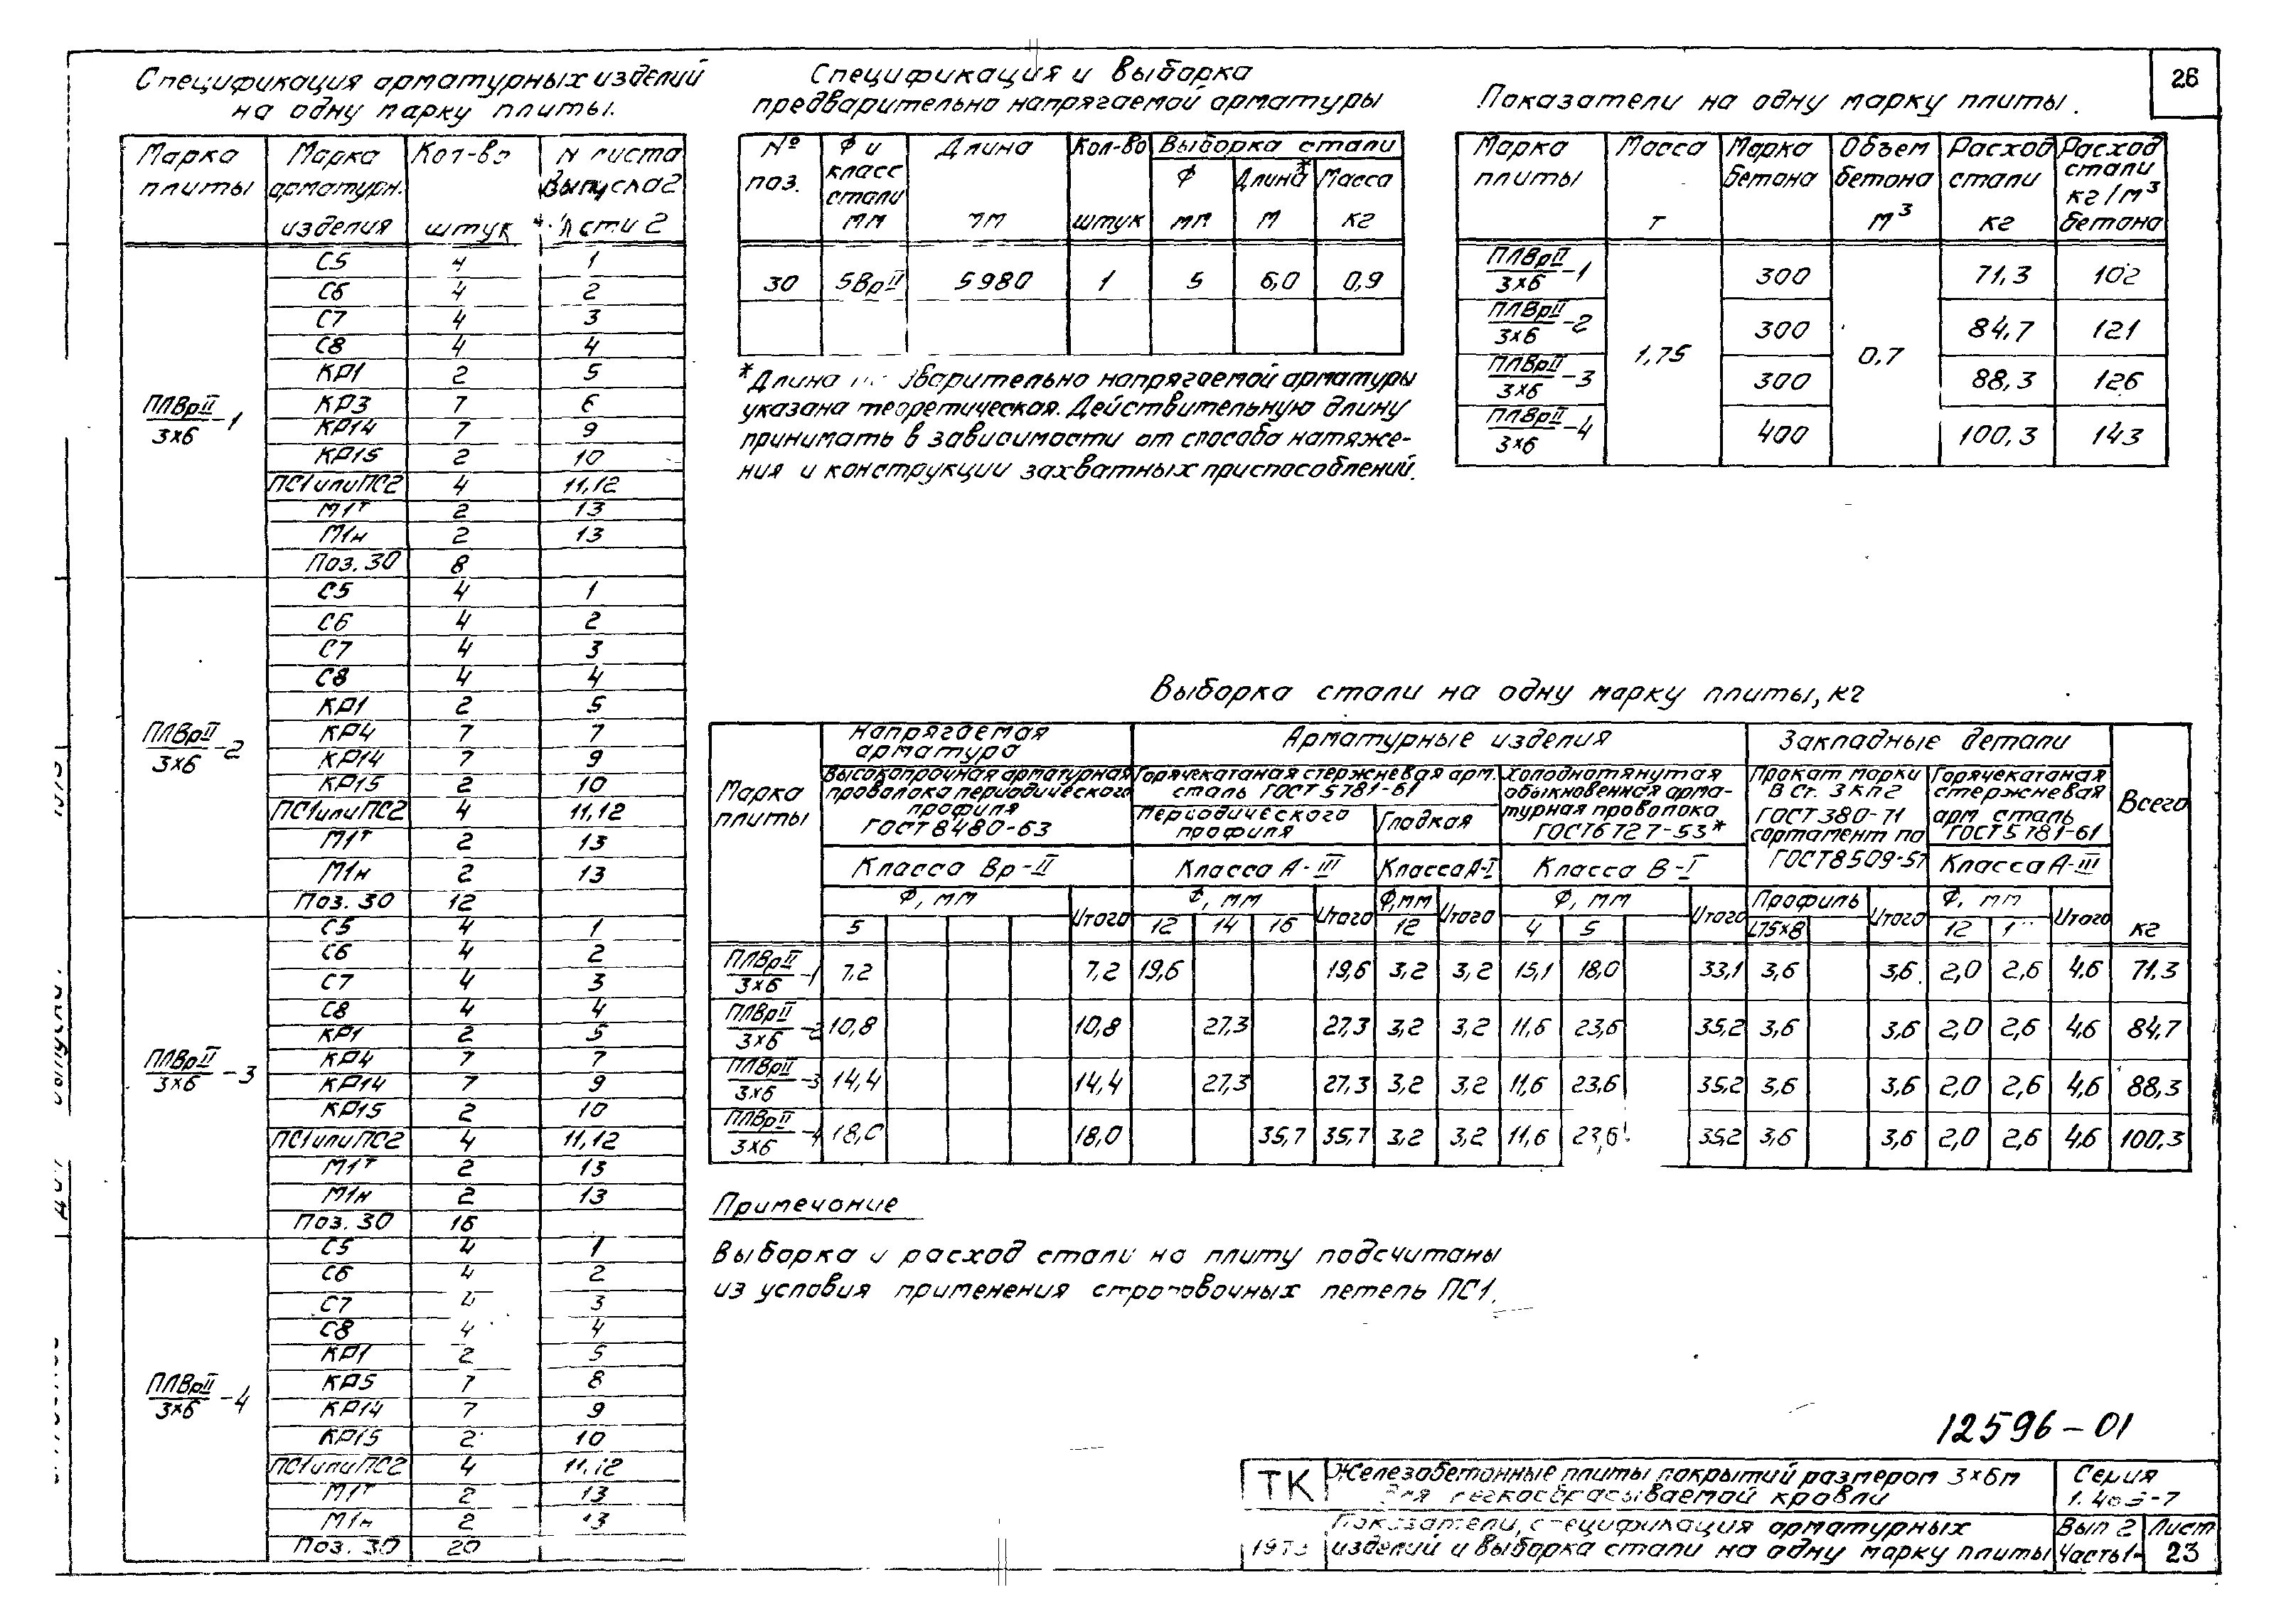 26
Спецификация арматурных изделий
на одну марку плиты.
Марка плиты | Марка арматурн. изделия | Кол-во штук | N листа выпуска 2 части 2
ПЛВрII/3×6 -1
С5 4 1
С6 4 2
С7 4 3
С8 4 4
КР1 2 5
КР3 7 6
КР14 7 9
КР15 2 10
ПС1 или ПС2 4 11,12
М1т 2 13
М1н 2 13
Поз. 30 8
ПЛВрII/3×6 -2
С5 4 1
С6 4 2
С7 4 3
С8 4 4
КР1 2 5
КР4 7 7
КР14 7 9
КР15 2 10
ПС1 или ПС2 4 11,12
М1т 2 13
М1н 2 13
Поз. 30 12
ПЛВрII/3×6 -3
С5 4 1
С6 4 2
С7 4 3
С8 4 4
КР1 2 5
КР4 7 7
КР14 7 9
КР15 2 10
ПС1 или ПС2 4 11,12
М1т 2 13
М1н 2 13
Поз. 30 16
ПЛВрII/3×6 -4
С5 4 1
С6 4 2
С7 4 3
С8 4 4
КР1 2 5
КР5 7 8
КР14 7 9
КР15 2 10
ПС1 или ПС2 4 11,12
М1т 2 13
М1н 2 13
Поз. 30 20
Спецификация и выборка
предварительно напрягаемой арматуры
№ поз. | Ф и класс стали мм | Длина мм | Кол-во штук | Выборка стали
Ф мм | Длина* м | Масса кг
30 5ВрII 5980 1 5 6,0 0,9
*Длина предварительно напрягаемой арматуры
указана теоретическая. Действительную длину
принимать в зависимости от способа натяже-
ния и конструкции захватных приспособлений.
Показатели на одну марку плиты.
Марка плиты | Масса т | Марка бетона | Объем бетона м³ | Расход стали кг | Расход стали кг/м³ бетона
ПЛВрII/3×6 -1 300 71,3 102
ПЛВрII/3×6 -2 300 84,7 121
1,75 0,7
ПЛВрII/3×6 -3 300 88,3 126
ПЛВрII/3×6 -4 400 100,3 143
Выборка стали на одну марку плиты, кг
Марка плиты | Напрягаемая арматура | Арматурные изделия | Закладные детали | Всего кг
Высокопрочная арматурная проволока периодического профиля ГОСТ 8480-63 | Горячекатаная стержневая арм. сталь ГОСТ 5781-61 | Холоднотянутая обыкновенная арматурная проволока ГОСТ 6727-53* | Прокат марки В Ст. 3 кп2 ГОСТ 380-71 сортамент по ГОСТ 8509-57 | Горячекатаная стержневая арм. сталь ГОСТ 5781-61
Периодического профиля | Гладкая
Класса Вр-II | Класса А-III | Класса А-I | Класса В-I | Класса А-III
Ф, мм | Итого | Ф, мм | Итого | Ф, мм | Итого | Ф, мм | Итого | Профиль | Итого | Ф, мм | Итого
5 12 14 16 12 4 5 L75×8 12
ПЛВрII/3×6 -1 7,2 7,2 19,6 19,6 3,2 3,2 15,1 18,0 33,1 3,6 3,6 2,0 2,6 4,6 71,3
ПЛВрII/3×6 -2 10,8 10,8 27,3 27,3 3,2 3,2 11,6 23,6 35,2 3,6 3,6 2,0 2,6 4,6 84,7
ПЛВрII/3×6 -3 14,4 14,4 27,3 27,3 3,2 3,2 11,6 23,6 35,2 3,6 3,6 2,0 2,6 4,6 88,3
ПЛВрII/3×6 -4 18,0 18,0 35,7 35,7 3,2 3,2 11,6 23,6 35,2 3,6 3,6 2,0 2,6 4,6 100,3
Примечание
Выборка и расход стали на плиту подсчитаны
из условия применения строповочных петель ПС1.
12596-01
ТК
Железобетонные плиты покрытий размером 3×6м
для легкосбрасываемой кровли
Серия
Показатели, спецификация арматурных
изделий и выборка стали на одну марку плиты
Вып 2
Часть 1
Лист
23